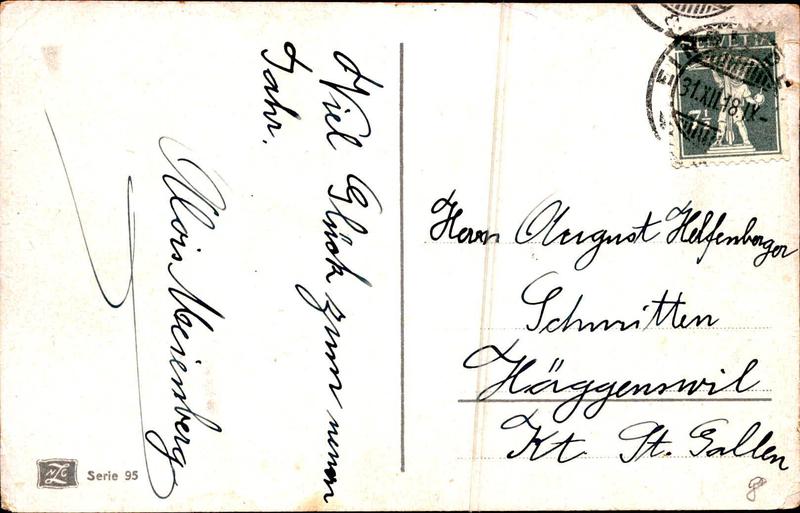 Viel Glück zum neuen
Jahr.
Alois Meienberg
Herrn August Helfenberger
Schmitten
Häggenswil
Kt St. Gallen
HELVETIA
7½
31.XII.18.IX-
Serie 95